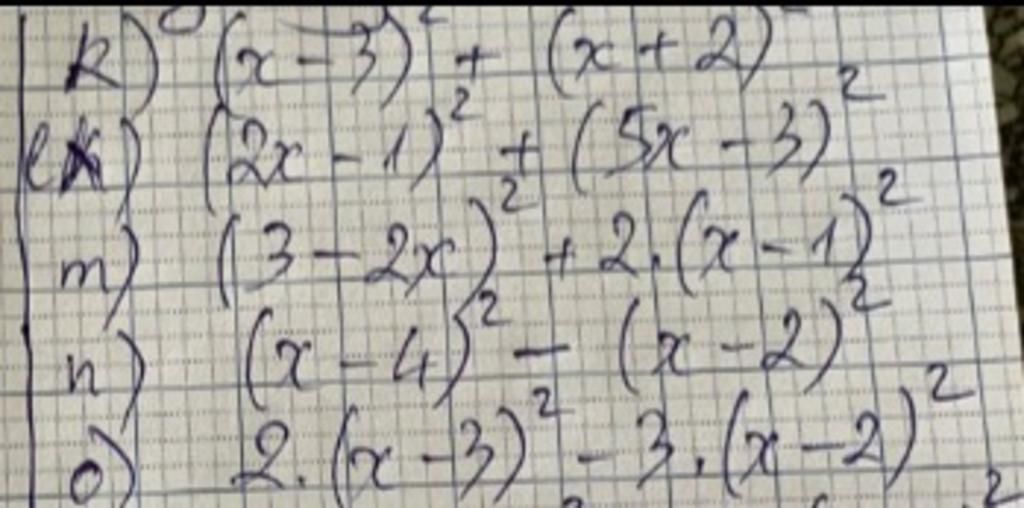 k) (x - 3)² + (x + 2)²
l) (2x - 1)² + (5x - 3)²
m) (3 - 2x)² + 2.(x - 1)²
n) (x - 4)² - (x - 2)²
o) 2.(x - 3)² - 3.(x - 2)²